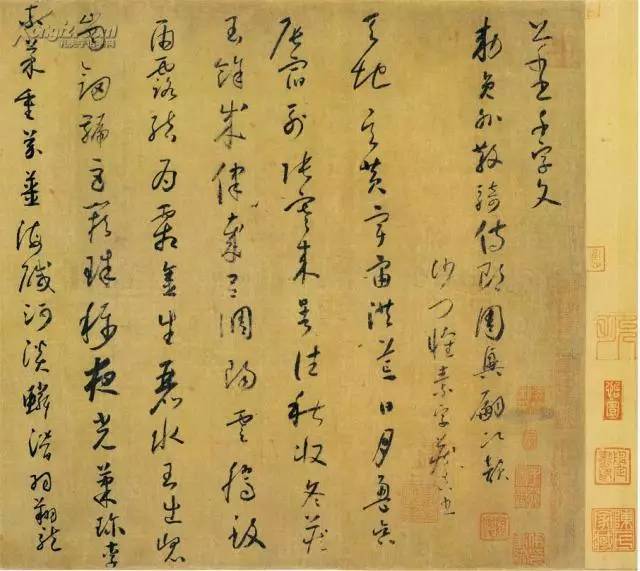 千字文
敕員外散騎侍郎周興嗣次韻
沙門懷素字藏真書
天地玄黃宇宙洪荒日月盈昃
辰宿列張寒來暑往秋收冬藏
閏餘成律呂調陽雲騰致
雨露結為霜金生麗水玉出崑
崗劍號巨闕珠稱夜光菓珍李
柰菜重芥薑海鹹河淡鱗潛羽翔龍